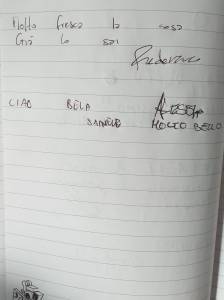 Molto fresca la cosa
Già lo sai
Federico
CIAO BELA
SAMUELE MOLTO BELLO